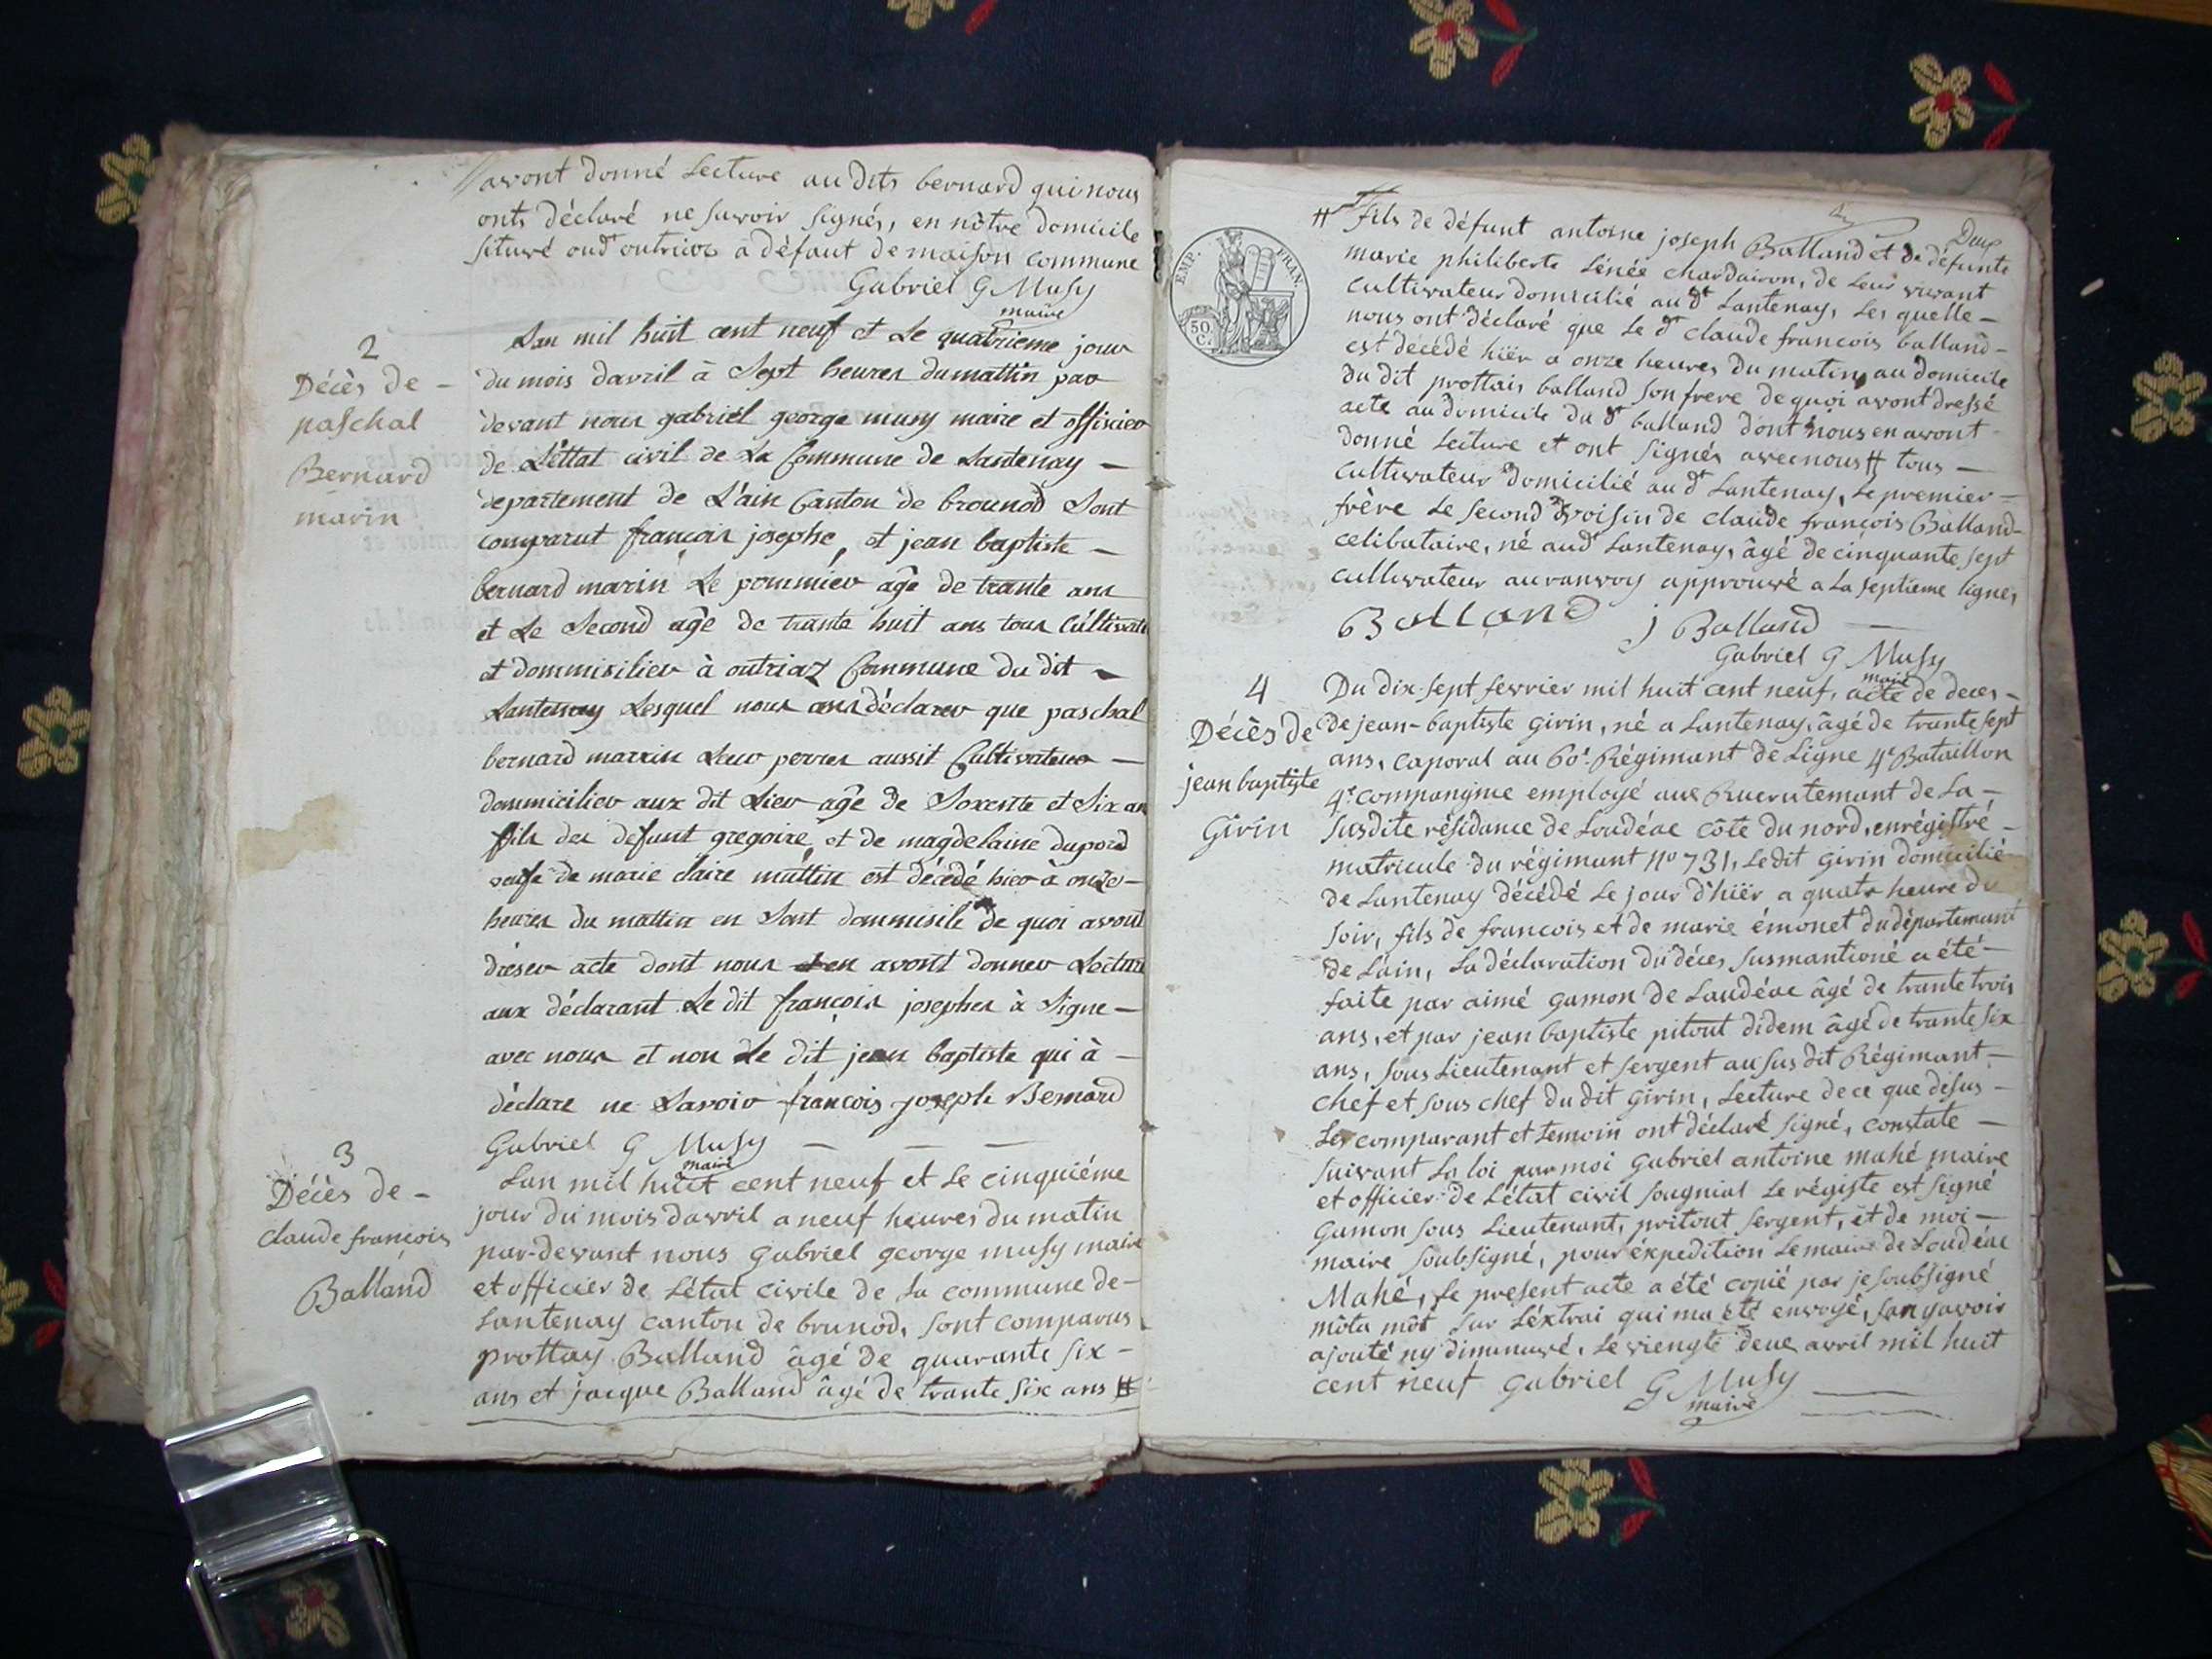 avont donné Lecture au dits bernard qui nous
onts déclaré ne savoir signés, en nôtre domicile
situvé oud outriaz a défaut de maison commune
Gabriel G Musy
maire
2
Décès de -
paschal
Bernard
marin
Lan mil huit cent neuf et Le quatrieme jour
du mois davril à Sept heures du mattin par
devant nous gabriel george musy maire et offisier
de L'éttat civil de La Commune de Lantenay -
departement de L'ain Canton de brounod Sont
comparut françois josephe, et jean baptiste -
bernard marin Le pommiér âge de trante ans
et Le Second âge de trante huit ans tous Cultivate
et dommisilier à outriaz Commune du dit -
Lantenay Lesquel nous ons déclarer que paschal
bernard marrin Leur perres aussit Cultivateur -
dommicilier aux dit Lieu âge de Soxente et Six an
fils des defunt gregoire, et de magdelaine dupord
veufe de marie claire muttin est décédé hier à onze -
heures du mattin en Sont dommisile de quoi avont
dréser acte dont nous en avont donner Lecture
aux déclarant Le dit françois josephes à Signe -
avec nous et non Le dit jean baptiste qui à -
déclare ne Savoir françois joseph Bernard
Gabriel G Musy
maire
3
Décès de -
claude françois
Balland
Lan mil huit cent neuf et Le cinquiéme
jour du mois davril a neuf heures du matin
par-devant nous Gabriel george musy maire
et officier de L'état civile de La commune de -
Lantenay canton de brunod, sont comparus
prottay Balland âgé de quarante six -
ans et jacque Balland âgé de trante six ans #
Deux
# fils de défunt antoine joseph Balland et de défunte
marie philiberte Lénée chardairon, de Leur vivant
cultivateur domicilié au dt Lantenay, Les quelle -
nous ont déclaré que Le dt claude francois balland -
est décédé hiër a onze heures du matin, au domicile
du dit prottais balland son frere de quoi avont dressé
acte au domicile du dt balland dont nous en avont -
donné Lecture et ont signés avec nous # tous -
cultivateur domicilié au dt Lantenay, Le premier -
frère Le second voisin de claude françois Balland -
celibataire, né aud Lantenay, âgé de cinquante sept
cultivateur au ranvoy approuvé a La septieme ligne,
EMP. FRAN.
50 C.
Balland j Balland
Gabriel G Musy
maire
4
Décès de
jean baptiste
Girin
Du dix-sept fevrier mil huit cent neuf, acte de deces -
de jean-baptiste Girin, né a Lantenay, âgé de trante sept
ans, caporal au 60e Régimant de Ligne 4e Bataillon
4e compangnie employé aus Rucrutemant de La -
susdite résidance de Loudéac côte du nord, enrégistré -
matricule du régimant No 731, Le dit Girin domicilié
de Lantenay décédé Le jour d'hiër a quatr heure du
soir, fils de francois et de marie émonet du département
de Lain, La déclaration du déces susmantioné a été -
faite par aimé gamon de Laudéac âgé de trante trois
ans, et par jean baptiste pitout didem âgé de trante six
ans, sous Lieutenant et sergent au sus dit Régimant -
chef et sous chef du dit Girin, Lecture de ce que desus -
Les comparant et temoin ont déclaré signé, constate -
suivant La loi par moi Gabriel antoine mahé maire
et officier de L'état civil sougnial Le régiste est signé
Gamon sous Lieutenant, pritout sergent, et de moi -
maire soubsigné, pour éxpedition Le maire de Loudéac
Mahé, Le present acte a été copié par je soubsigné
môta môt sur L'éxtrai qui ma été envoyé, san y avoir
ajouté ny diminuvé, Le viengte deue avril mil huit
cent neuf Gabriel G Musy
maire